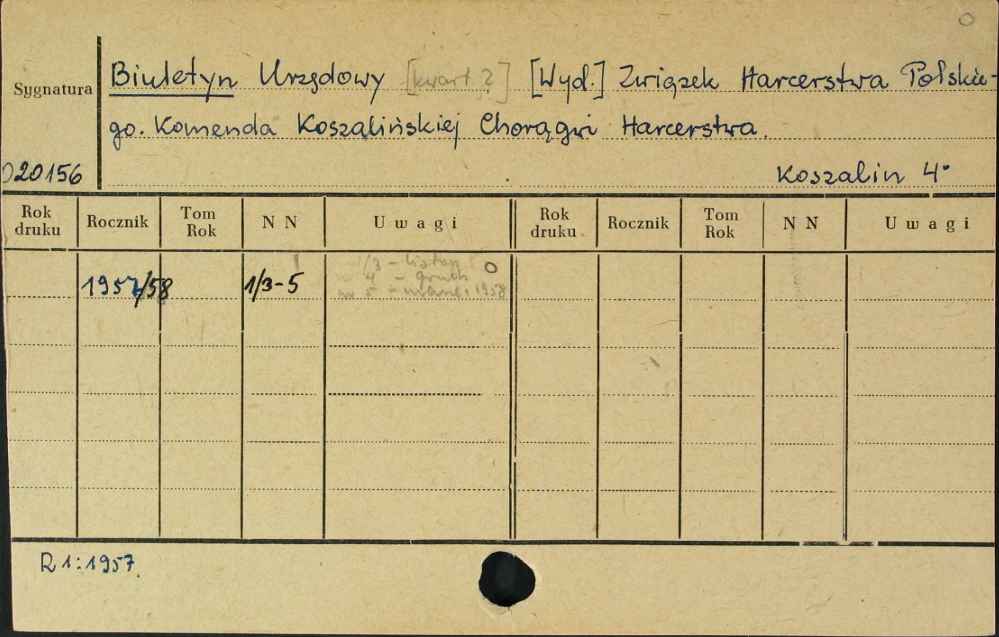 Sygnatura
Biuletyn Urzędowy [kwart.?] [Wyd.] Związek Harcerstwa Polskie-
go. Komenda Koszalińskiej Chorągwi Harcerstwa.
020156 Koszalin 4°
Rok druku Rocznik Tom Rok N N Uwagi Rok druku Rocznik Tom Rok N N Uwagi
1/3 - listop
1957/58 1/3-5 4 - grudz
nr 5 - 1958
R 1:1957.